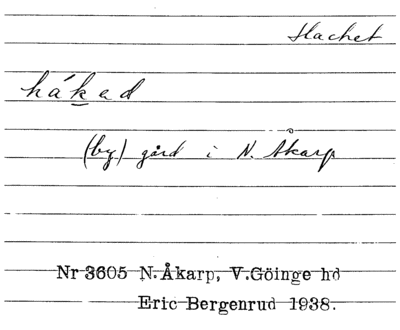 Hachet
háked
(by) gård i N. Åkarp
Nr 3605 N. Åkarp, V. Göinge hd
Eric Bergenrud 1938.